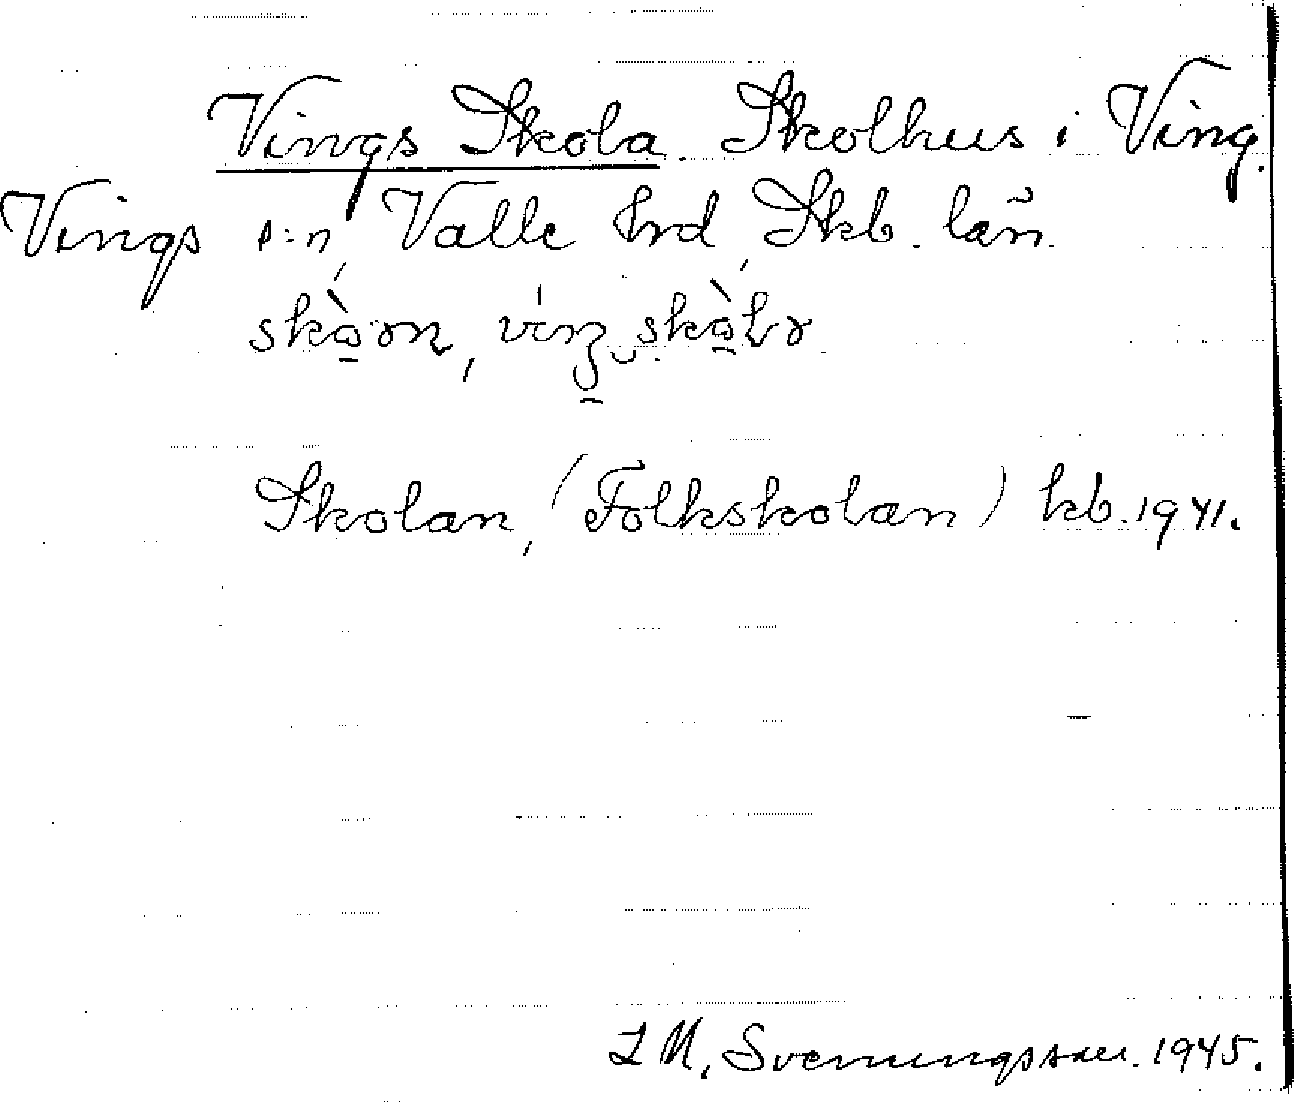 Vings Skola. Skolhus i Ving.
Vings s:n, Valle hrd, Skb. län.
Skolan, (Folkskolan) kb. 1941.
I M. Svenungsson. 1945.